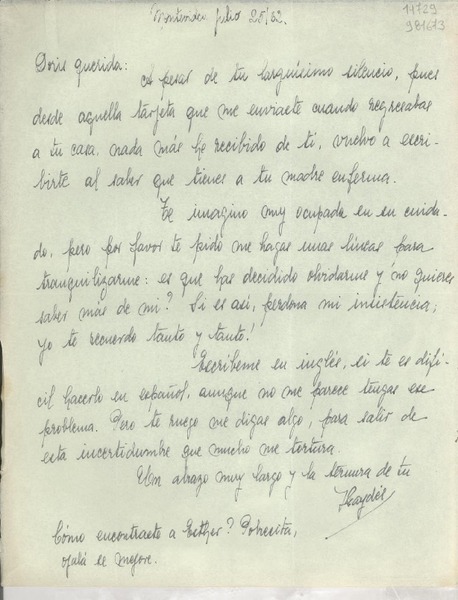 Montevideo julio 25/52.
14729
981673
Doris querida:
A pesar de tu larguísimo silencio, pues
desde aquella tarjeta que me enviaste cuando regresabas
a tu casa nada más he recibido de ti, vuelvo a escri-
birte al saber que tienes a tu madre enferma.
Te imagino muy ocupada en su cuida-
do, pero por favor te pido me hagas unas líneas para
tranquilizarme: es que has decidido olvidarme y no quieres
saber más de mi? Si es así, perdona mi insistencia;
yo te recuerdo tanto y tanto!
Escribeme en inglés, si te es difi-
cil hacerlo en español, aunque no me parece tengas ese
problema. Pero te ruego me digas algo, para salir de
esta incertidumbre que mucho me tortura.
Un abrazo muy largo y la ternura de tu
Haydée
Cómo encontraste a Esther? Pobrecita,
ojalá se mejore.